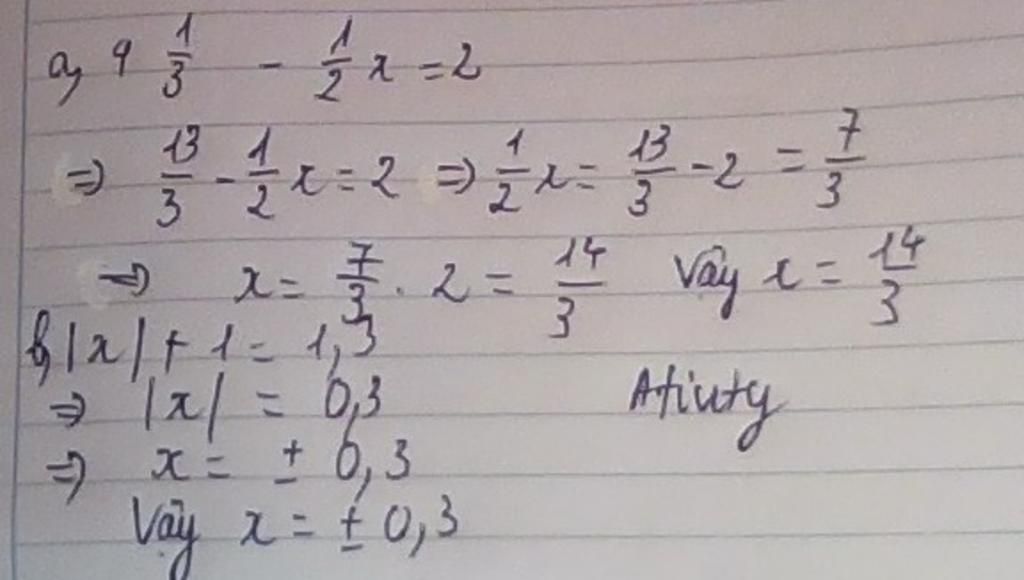 a, 4 1/3 - 1/2 x = 2
=> 13/3 - 1/2 x = 2 => 1/2 x = 13/3 - 2 = 7/3
=> x = 7/3 . 2 = 14/3 Vậy x = 14/3
b, |x| + 1 = 1,3
=> |x| = 0,3
Atiuty
=> x = ± 0,3
Vậy x = ± 0,3